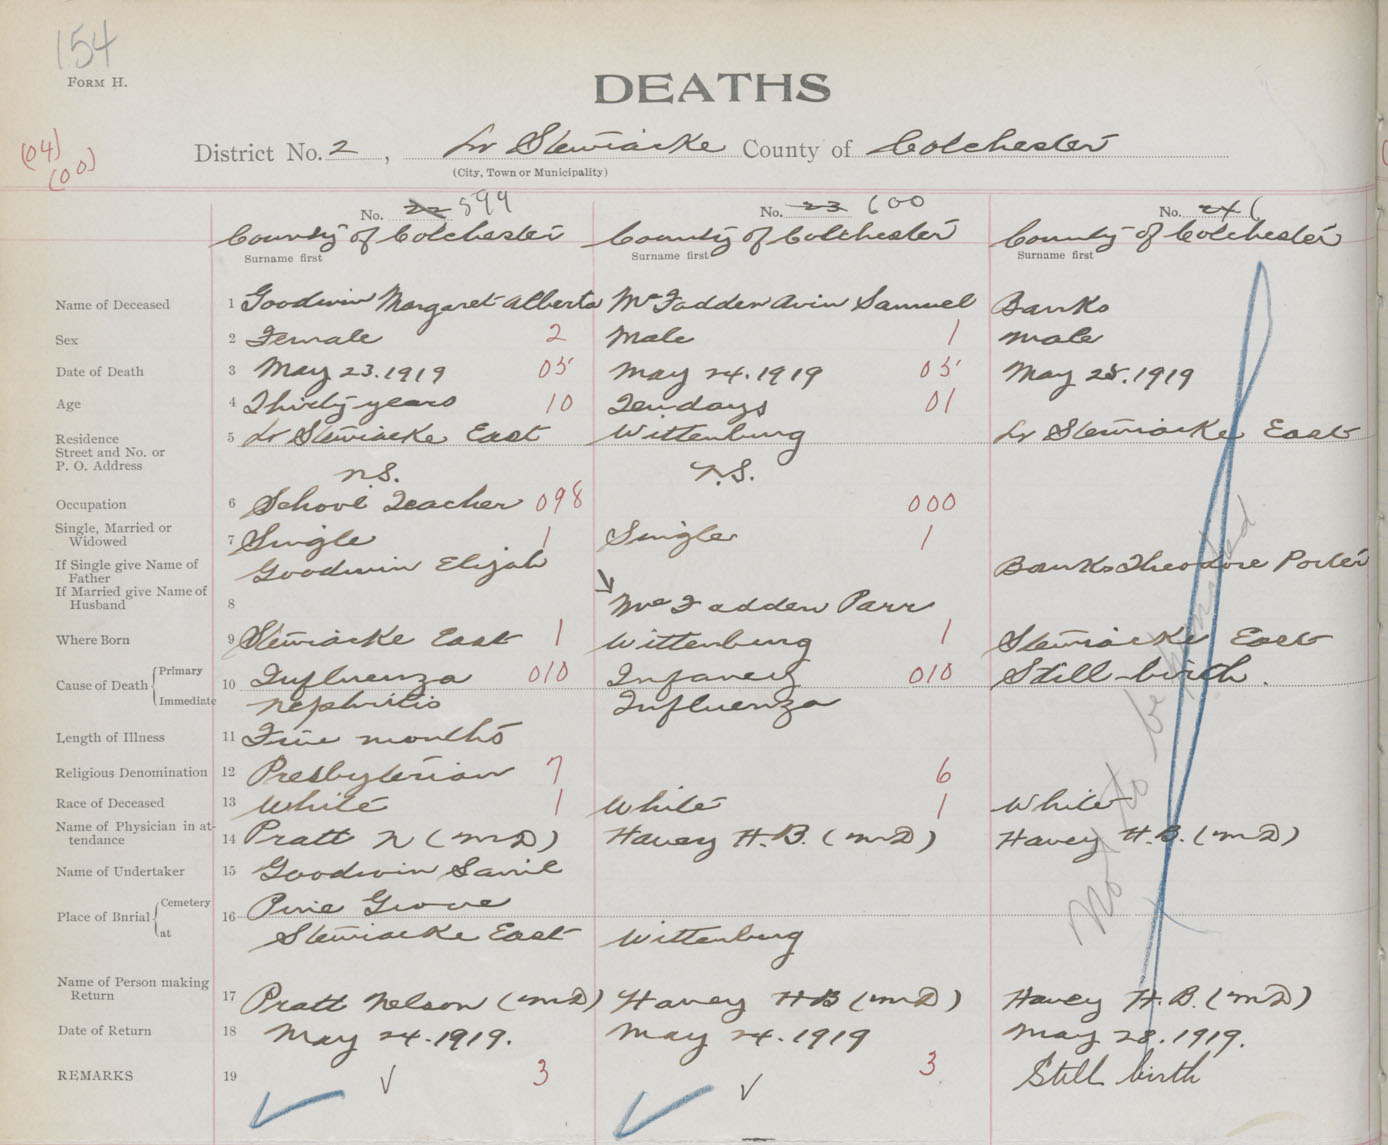 154
FORM H.
DEATHS
(04)
(00)
District No. 2, Lr Stewiacke County of Colchester
(City, Town or Municipality)
No. 22 599 No. 23 600 No. 24
County of Colchester County of Colchester County of Colchester
Surname first Surname first Surname first
Name of Deceased 1 Goodwin Margaret Alberta McFadden Avin Samuel Banks
Sex 2 Female 2 Male 1 Male
Date of Death 3 May 23. 1919 05 May 24. 1919 05 May 28. 1919
Age 4 Thirty years 10 Ten days 01
Residence 5 Lr Stewiacke East Wittenburg Lr Stewiacke East
Street and No. or
P. O. Address N.S. N.S.
Occupation 6 School Teacher 098 000
Single, Married or
Widowed 7 Single 1 Single 1
If Single give Name of
Father Goodwin Elijah Banks Theodore Porter
If Married give Name of
Husband 8 McFadden Parr
Where Born 9 Stewiacke East 1 Wittenburg 1 Stewiacke East
Cause of Death 10 Primary Influenza 010 Infancy 010 Still-birth.
Immediate Nephritis Influenza
Length of Illness 11 Five months
Religious Denomination 12 Presbyterian 7 6
Race of Deceased 13 White 1 White 1 White
Name of Physician in at-
tendance 14 Pratt N (MD) Havey H.B. (MD) Havey H.B. (MD)
Name of Undertaker 15 Goodwin
Place of Burial 16 Cemetery Pine Grove
at Stewiacke East Wittenburg
Name of Person making
Return 17 Pratt Nelson (MD) Havey HB (MD) Havey H.B. (MD)
Date of Return 18 May 24. 1919. May 24. 1919 May 28. 1919.
REMARKS 19 3 3 Still birth
Not to be